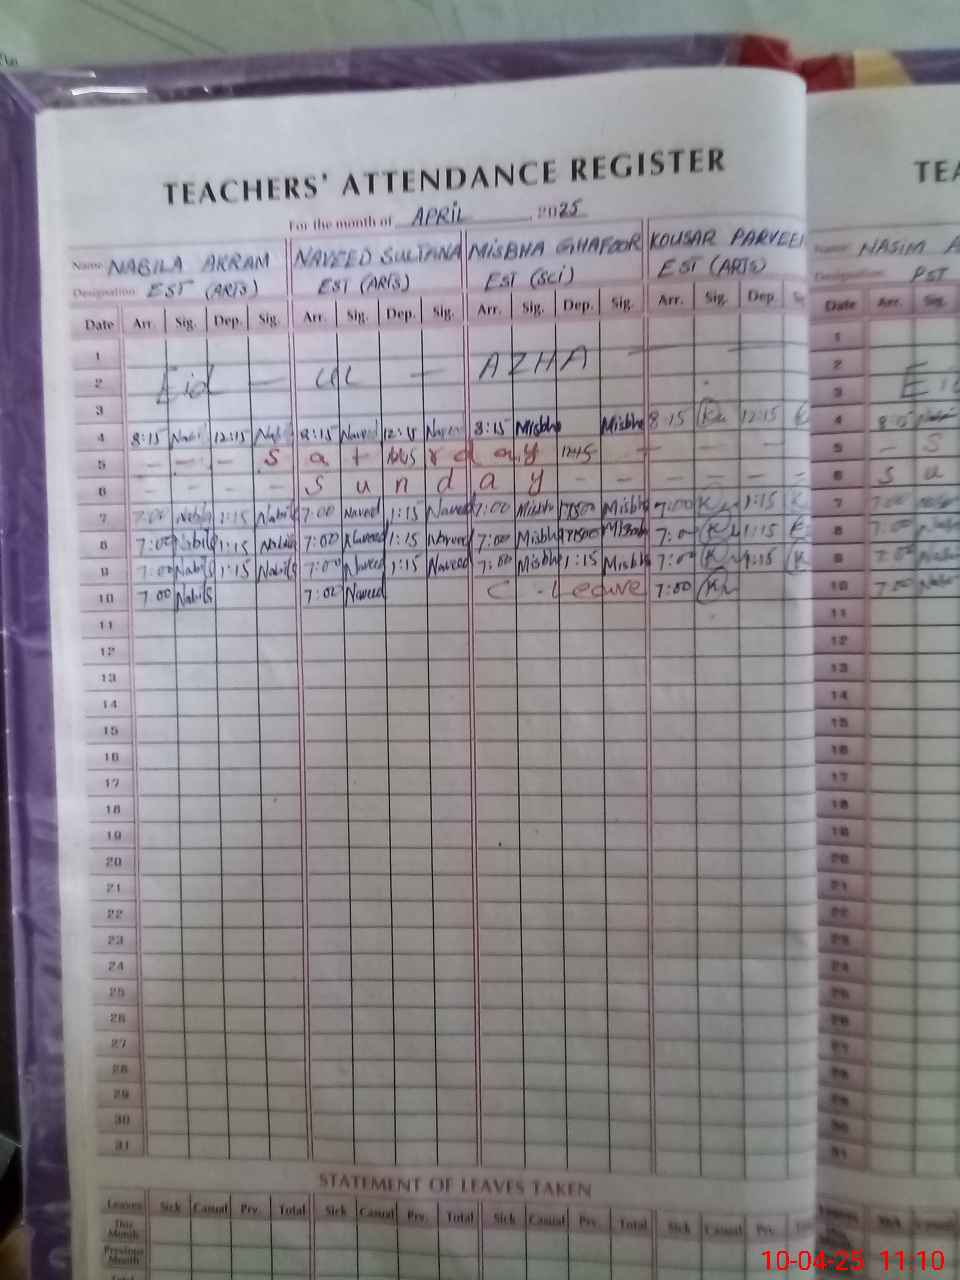 TEACHERS' ATTENDANCE REGISTER
For the month of APRIL 2025
Name NABILA AKRAM NAVEED SULTANA MISBHA GHAFOOR KOUSAR PARVEEN
Designation EST (ARTS) EST (ARTS) EST (SCI) EST (ARTS)
Date Arr. Sig. Dep. Sig. Arr. Sig. Dep. Sig. Arr. Sig. Dep. Sig. Arr. Sig. Dep.
1
2 Eid — UL — AZHA
3
4 8:15 12:15 8:15 Naveed 8:15 Misbha Misbha 8:15 12:15
5 — — — S a t r d a y 12:45
6 — — — — S u n d a y — — — — — —
7 7:00 Nabila 1:15 Nabila 7:00 Naveed 1:15 Naveed 7:00 Misbha Misbha 7:00 1:15
8 7:00 Nabila 1:15 Nabila 7:00 Naveed 1:15 Naveed 7:00 Misbha Misbha 7:00 1:15
9 7:00 Nabila 1:15 Nabila 7:00 Naveed 1:15 Naveed 7:00 Misbha 1:15 Misbha 7:00 1:15
10 7:00 Nabila 7:00 Naveed C. Leave 7:00
11
12
13
14
15
16
17
18
19
20
21
22
23
24
25
26
27
28
29
30
31
STATEMENT OF LEAVES TAKEN
Leaves Sick Casual Prv. Total Sick Casual Prv. Total Sick Casual Prv. Total Sick Casual Prv.
This Month
Previous Month
TEA
Name NASIM
Designation PST
Date Arr. Sig.
1
2
3 Ei
4 8:15
5 — S
6 S u
7 7:00
8 7:00
9 7:00
10 7:00
11
12
13
14
15
16
17
18
19
20
21
22
23
24
25
26
27
28
29
30
31
10-04-25 11:10